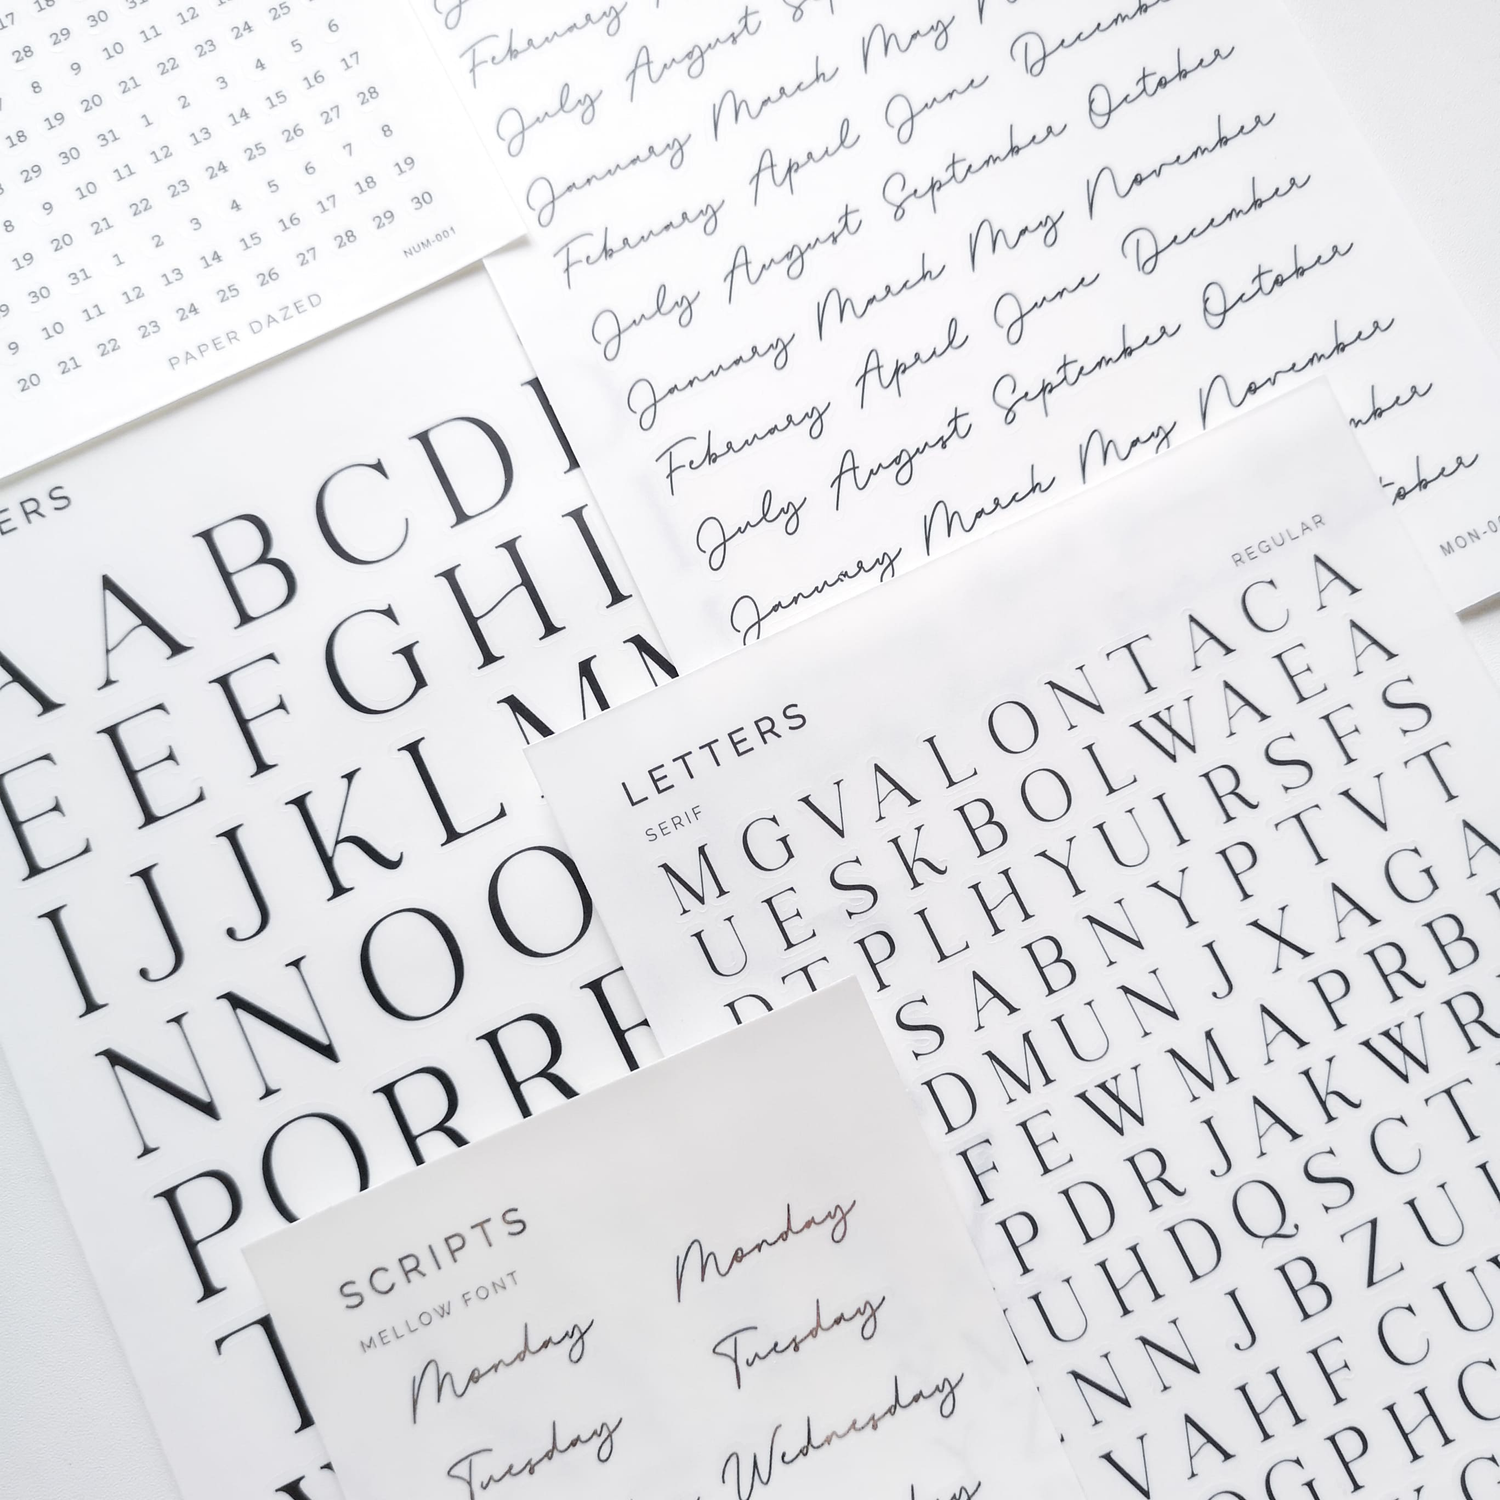 17 18
28 29 30 31
8 9 10 11 12 13 24 25
18 19 20 21 22 23 4 5 6
29 30 31 1 2 3 14 15 16 17
8 9 10 11 12 13 25 26 27 28
19 20 21 22 23 24 5 6 7 8
30 31 1 2 3 4 15 16 17 18 19
9 10 11 12 13 14 26 27 28 29 30
20 21 22 23 24 25
NUM-001
PAPER DAZED
February
July August
January March May
February April June December
July August September October
January March May November
February April June December
July August September October
January March May November
LETTERS
SERIF
REGULAR
M G V A L O N T A C A
U E S K B O L W A E A
P L H Y U I R S F S
S A B N Y P T V T
D M U N J X A G A
F E W M A P R B
P D R J A K W R
U H D Q S C T
N N J B Z U
V A H F C U
G P H C
A A B C D
E E F G H I
I J J K L M
N N O O
P Q R R
T
SCRIPTS
MELLOW FONT
Monday Monday
Tuesday Tuesday
Wednesday